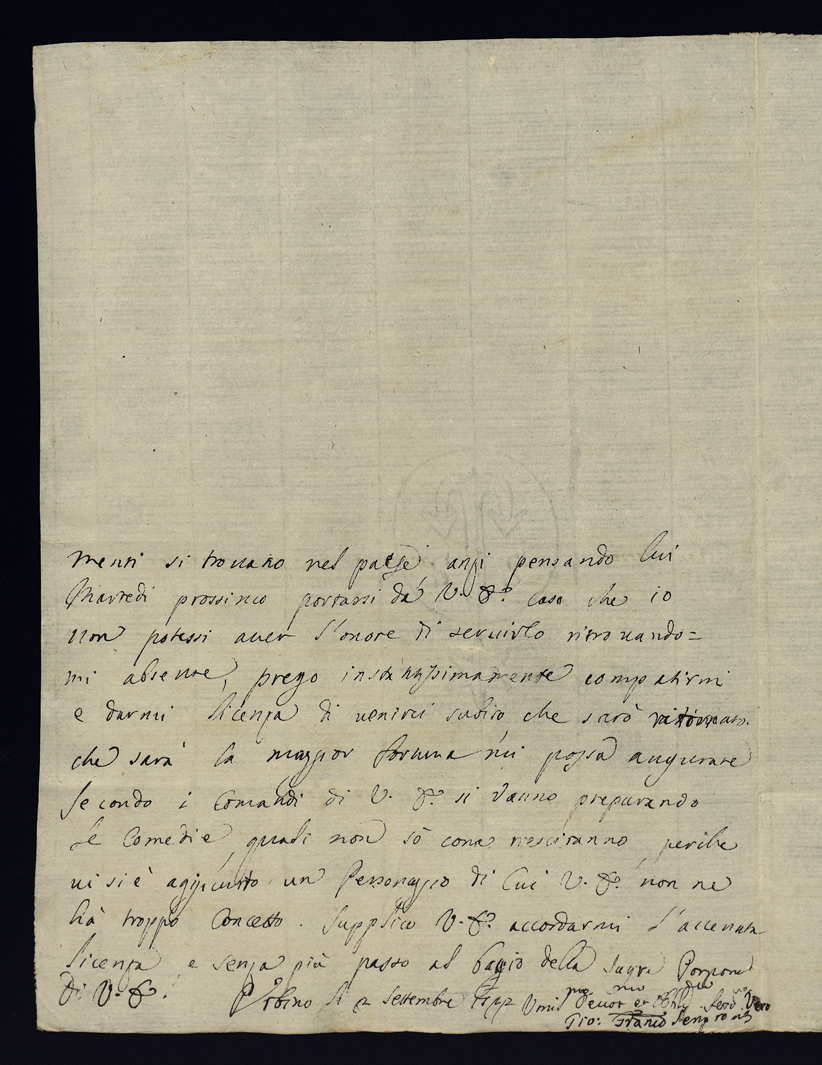 menti si trovano nel paese anzi pensando lui
Martedi prossimo portarsi dá V. E.ª caso che io
non potessi aver l'onore di servirlo ritrovando=
mi absente, prego instantissimamente compatirmi
e darmi licenza di venirci subito che sarò ritornato.
che sara' la maggior fortuna mi possa augurare
secondo i Comandi di V. E.ª si vanno preparando
le Comedie, quali non sò come riesciranno, perche
vi si è aggiunto un Personaggio di cui V. E.ª non ne
hà troppo Concetto. Supplico V. E.ª accordarmi l'accenata
licenza e senza più passo al bagcio della Sagra Porpora
Di V. E.ª. Urbino li 2 Settembre Umil.mo Devot.mo et Obl.mo Serv.re Vero
Gio: Franc.o Sempronij